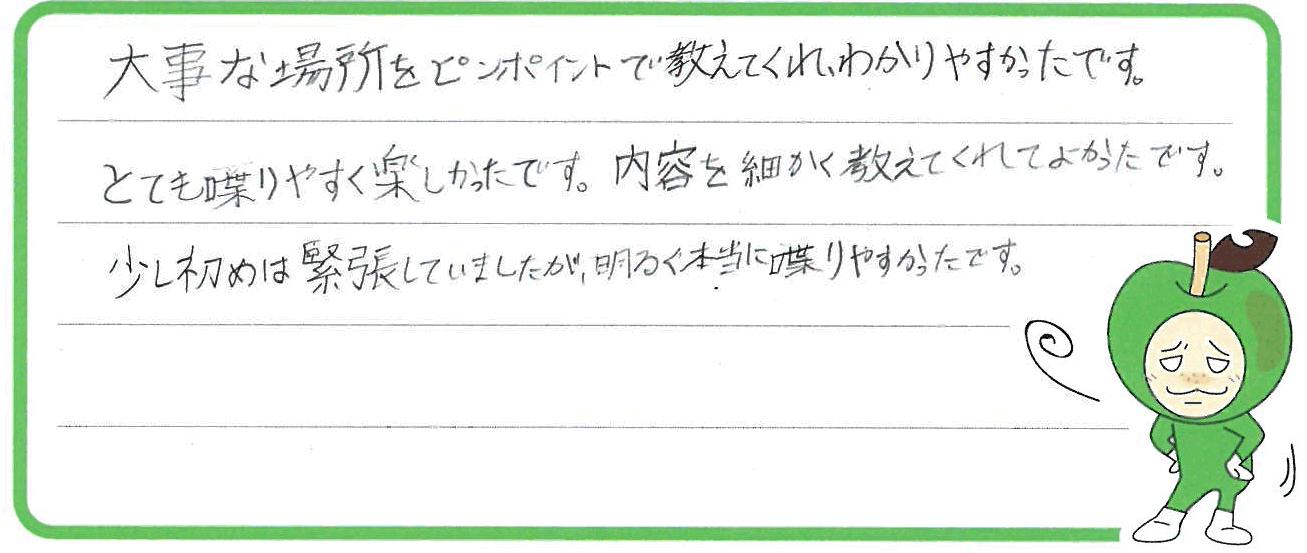 大事な場所をピンポイントで教えてくれ、わかりやすかったです。
とても喋りやすく楽しかったです。内容を細かく教えてくれてよかったです。
少し初めは緊張していましたが、明るく本当に喋りやすかったです。